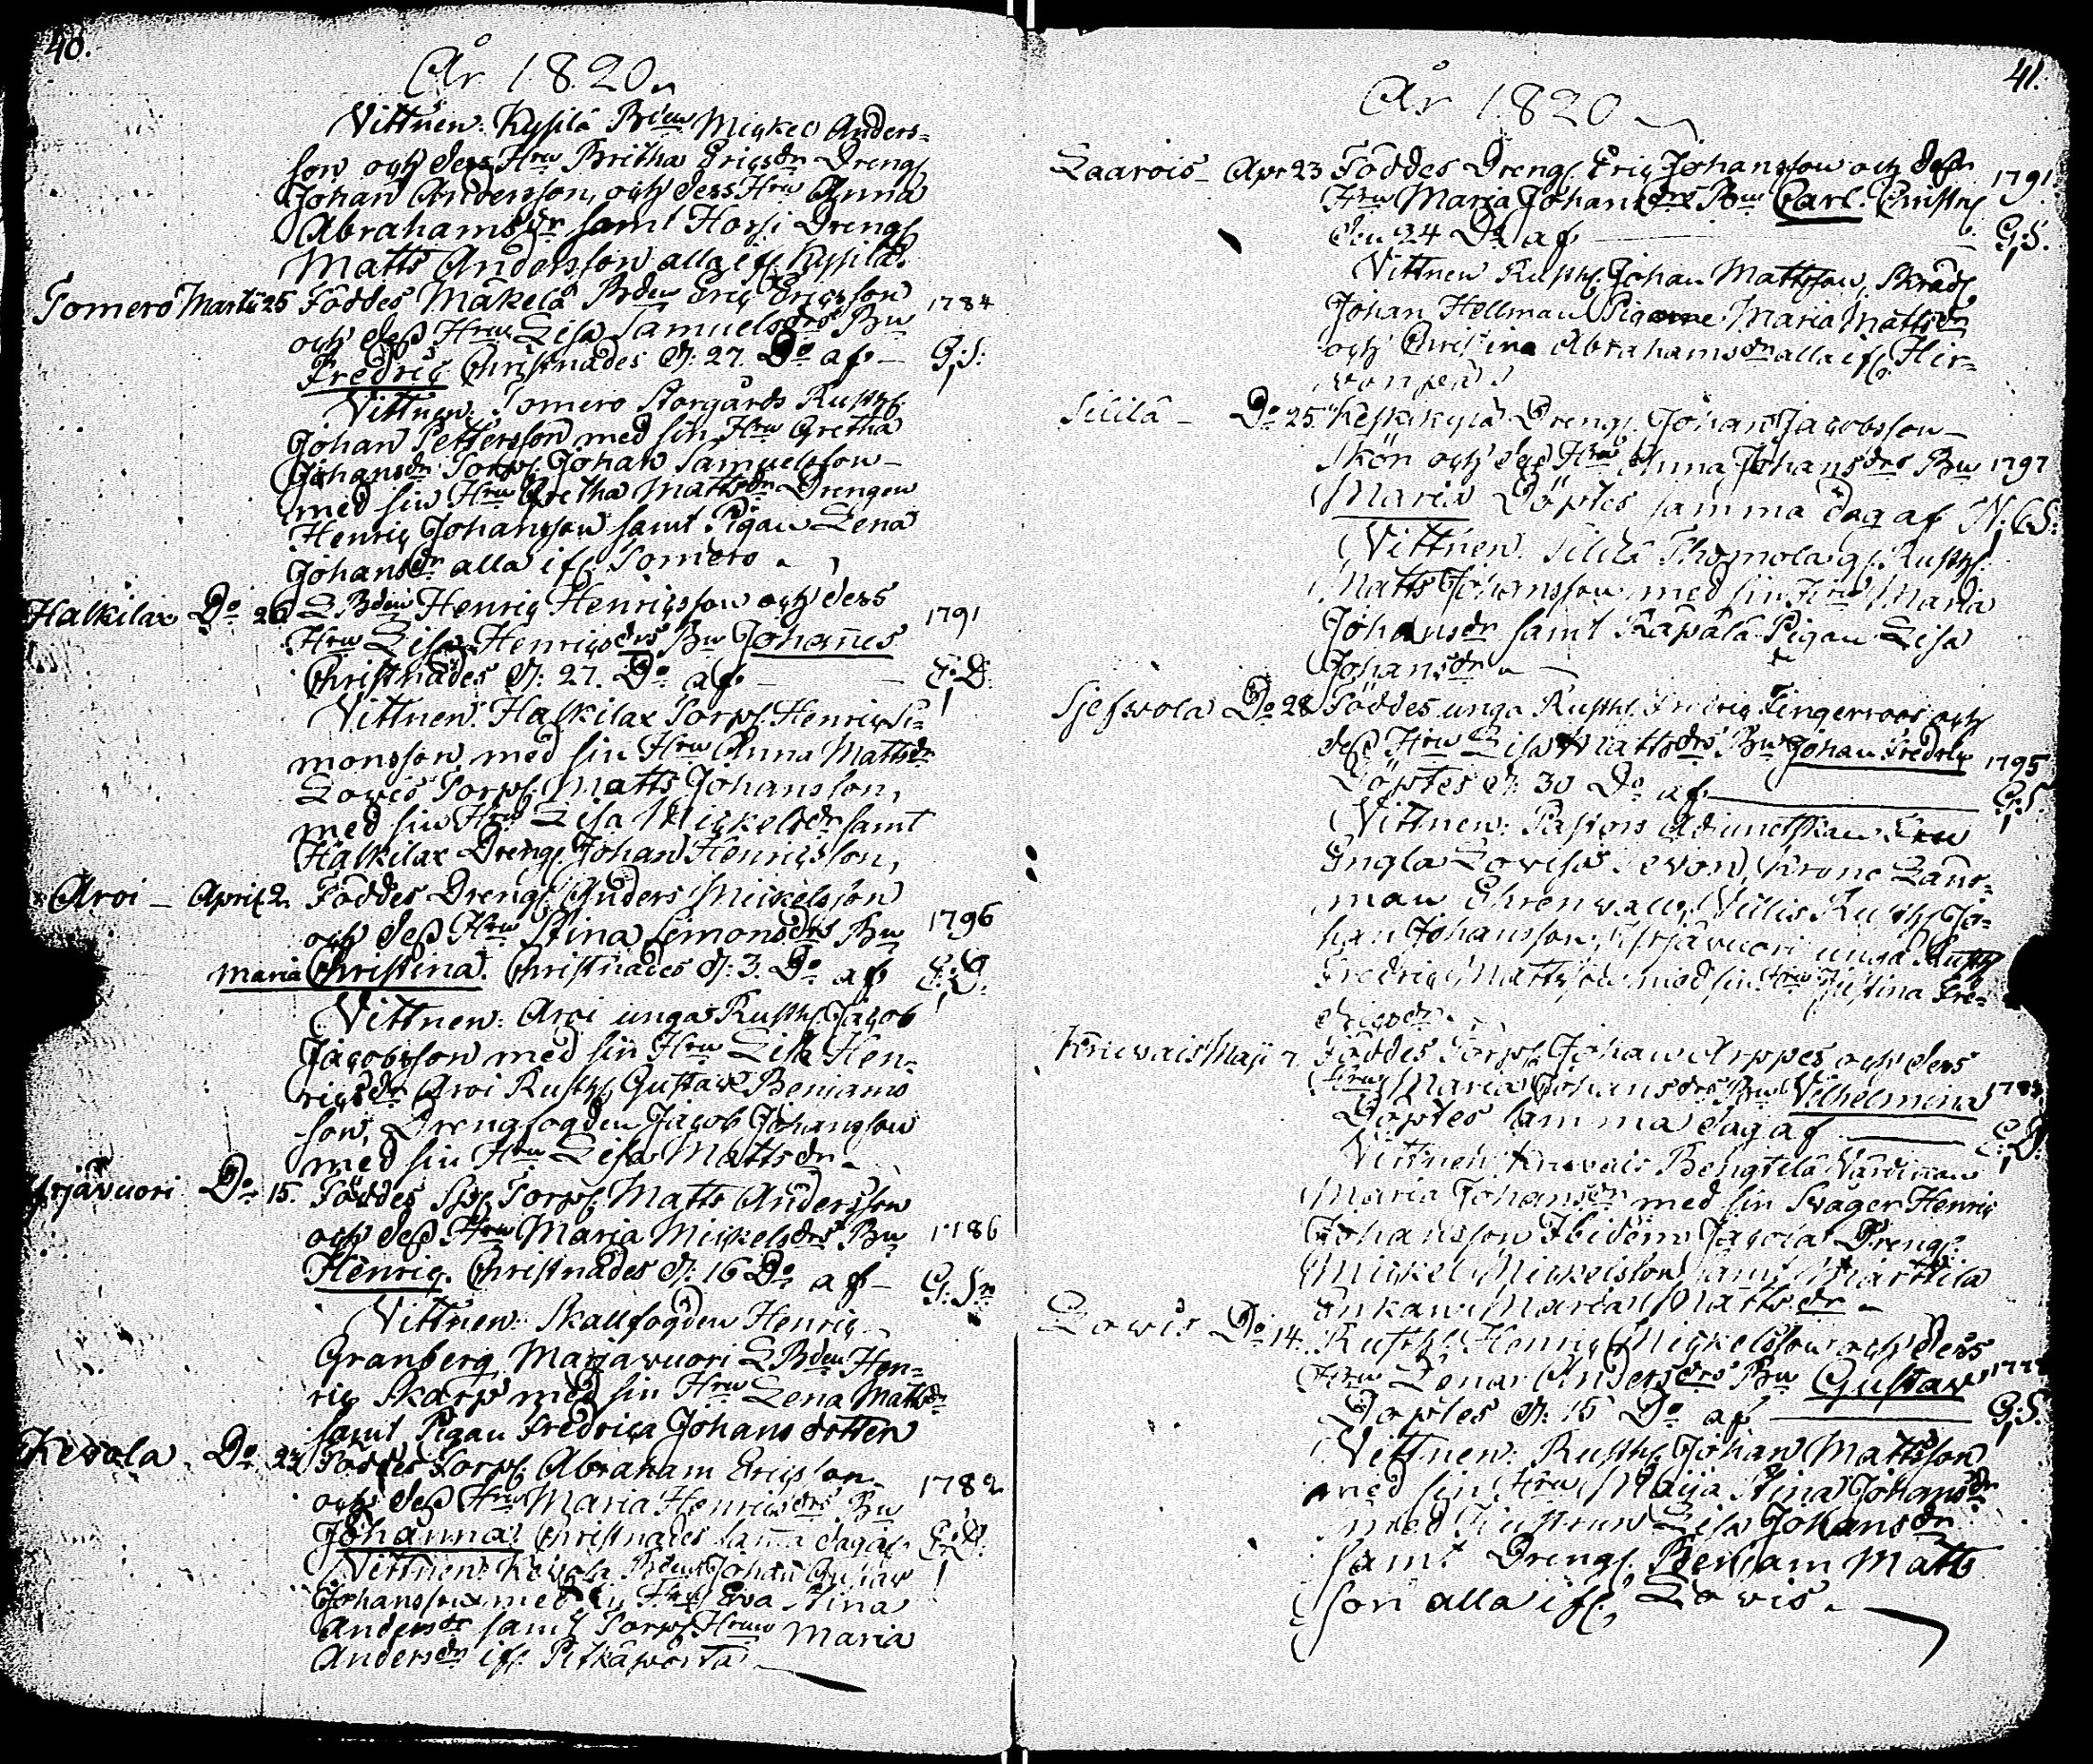 40.
År 1820
Vittnen: Kysilä Bden Mickel Anders-
son och dess Hru Britha Ericsdr Drengn
Johan Andersson, och dess Hru Anna
Abrahamsdr samt Horsi Drengn
Matts Andersson alla ifr Kysilä.
Tomero Martii 25 Föddes Mäkelä Bden Eric Ericsson 1784
och dess Hru Lisa Samuelsdrs Bn
Fredric Christnades d: 27. Do af G:S:
Vittnen: Tomero Storgårds Rusth.
Johan Pettersson med sin Hru Gretha
Johansdr Torp. Johan Samuelsson
med sin Hru Gretha Mattsdr Drengen
Henric Johansson samt Pigan Lena
Johansdr alla ifr Tomero.
Halkilax Do 26 L Bden Henric Henricsson och dess 1791
Hru Lisa Henricsdrs Bn Johannes
Christnades d: 27. Do af E:D:
Vittnen: Halkilax Torp. Henric Si-
monsson med sin Hru Anna Mattsdr
Lowis Torp. Matts Johansson,
med sin Hru Lisa Mickelsdr samt
Halkilax Drengn Johan Henricsson,
Aroi April 2. Föddes Drengn Anders Mickelsson
och dess Hru Stina Simonsdrs Bn 1796
Maria Christina. Christnades d: 3. Do af E:D:
Vittnen: Aroi unga Rusth. Jacob
Jacobsson med sin Hru Lisa Hen-
ricsdr Aroi Rusth. Gustav Beniams
son, Drengfogden Jacob Johansson
med sin Hru Lisa Mattsdr
Yrjävuori Do 15. Föddes Torp. Matts Andersson
och dess Hru Maria Mickelsdrs Bn 1786
Henric. Christnades d: 16 Do af G:Sn
Vittnen: Skallfogden Henric
Granberg Marjavuori L Bden Hen-
ric Skarp med sin Hru Lena Mattsdr
samt Pigan Fredrica Johans dotter
Kevola Do 23 Föddes Torp. Abraham Ericsson 1782
och dess Hru Maria Henricsdrs Bn
Johanna. Christnades samma dag af E:D:
Vittnen: Kevola Bden Johan Gustav
Johansson med sin Hru Eva Stina
Andersdr samt Torp. Hrun Maria
Andersdr ifr Pitkäporta
41.
År 1820
Laarois Apr 23 Föddes Drengn Eric Johansson och dess 1791
Hru Maria Johansdrs Bn Carl. Christn
den 24 Do af G:S.
Vittnen Rusth. Johan Mattsson, Skräd
Johan Hellman Pigorne Maria Mattsdr
och Christina Abrahamsdr alla ifr Hir-
vonpää
Sillilä Do 25. Keskikylä Drengn Johan Jacobsson
Skön och dess Hru Anna Johansdrs Bn 1797
Maria Döptes samma dag af N:CS:
Vittnen: Sillilä Thomola g. Rusth.
Matts Johansson med sin Hru Maria
Johansdr samt Rapala Pigan Lisa
Johansdr
Sjefvola Do 28 Föddes unga Rusth. Fredric Fingerroos och
dess Hru Lisa Mattsdrs Bn Johan Fredric 1795
Döptes d: 30 Do af G:S.
Vittnen: Pastors Adiunctskan Fru
Engla Lovisa Krono Läns-
man Ehrenwall, Villis Rusth. Jo-
han Johansson, Yrjävuori unga Rusth
Fredric Mattsson med sin Hru Justina Fre-
dricsdr
Krievais Maji 7 Föddes Torp. Johan Arppes och dess
Hru Maria Johansdrs Bn Vilhelmina
Döptes samma dag af E:D:
Vittnen: Krievais Bengtilä Värdinnan
Maria Johansdr med sin Svåger Henric
Johansson Ibidem, Drengn
Mickel Mickelsson samt Marttila
Enkan Maria Mattsdr
Lowis Do 14. Rusth. Henric Mickelsson och dess
Hru Lena Andersdrs Bn Gustav
Döptes d: 15 Do af G:S.
Vittnen: Rusth. Johan Mattsson
med sin Hru Maija Stina Johansdr
med Hustrun Lisa Johansdr
samt Drengn Beniam Matts
son alla ifr Lowis.